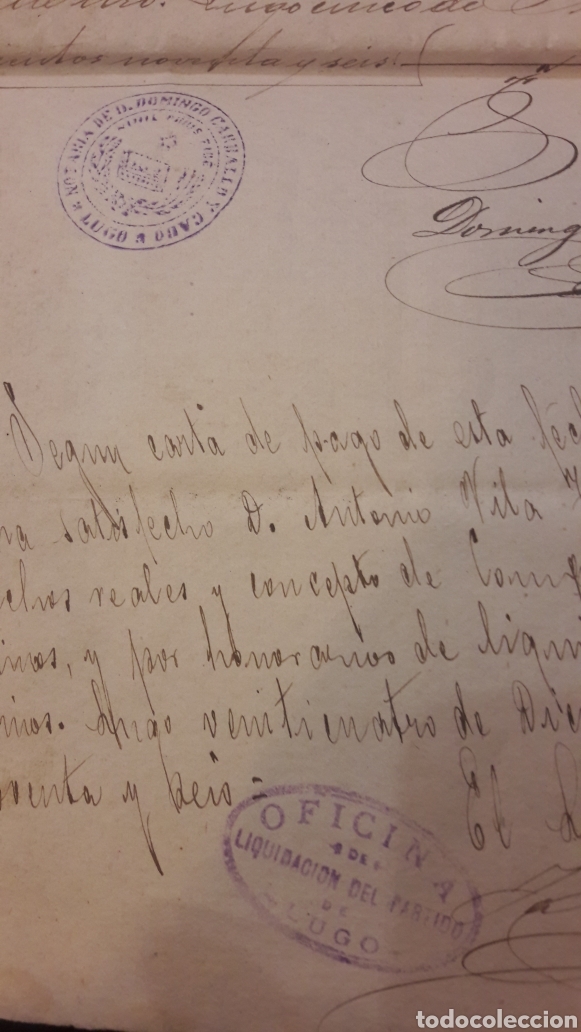 cinco de
noventa y seis
NOTARIA DE D. DOMINGO CARBALLO Y CABO
LUGO
NIHIL PRIUS FIDE
Doming
Segun carta de pago de esta fec
ha satisfecho D. Antonio Vila
chos reales y concepto de Comp
imos, y por honorarios de liqui
imos. Lugo veinticuatro de Dici
oventa y seis=
El
OFICINA
DE
LIQUIDACION DEL PARTIDO
DE
LUGO
todocoleccion